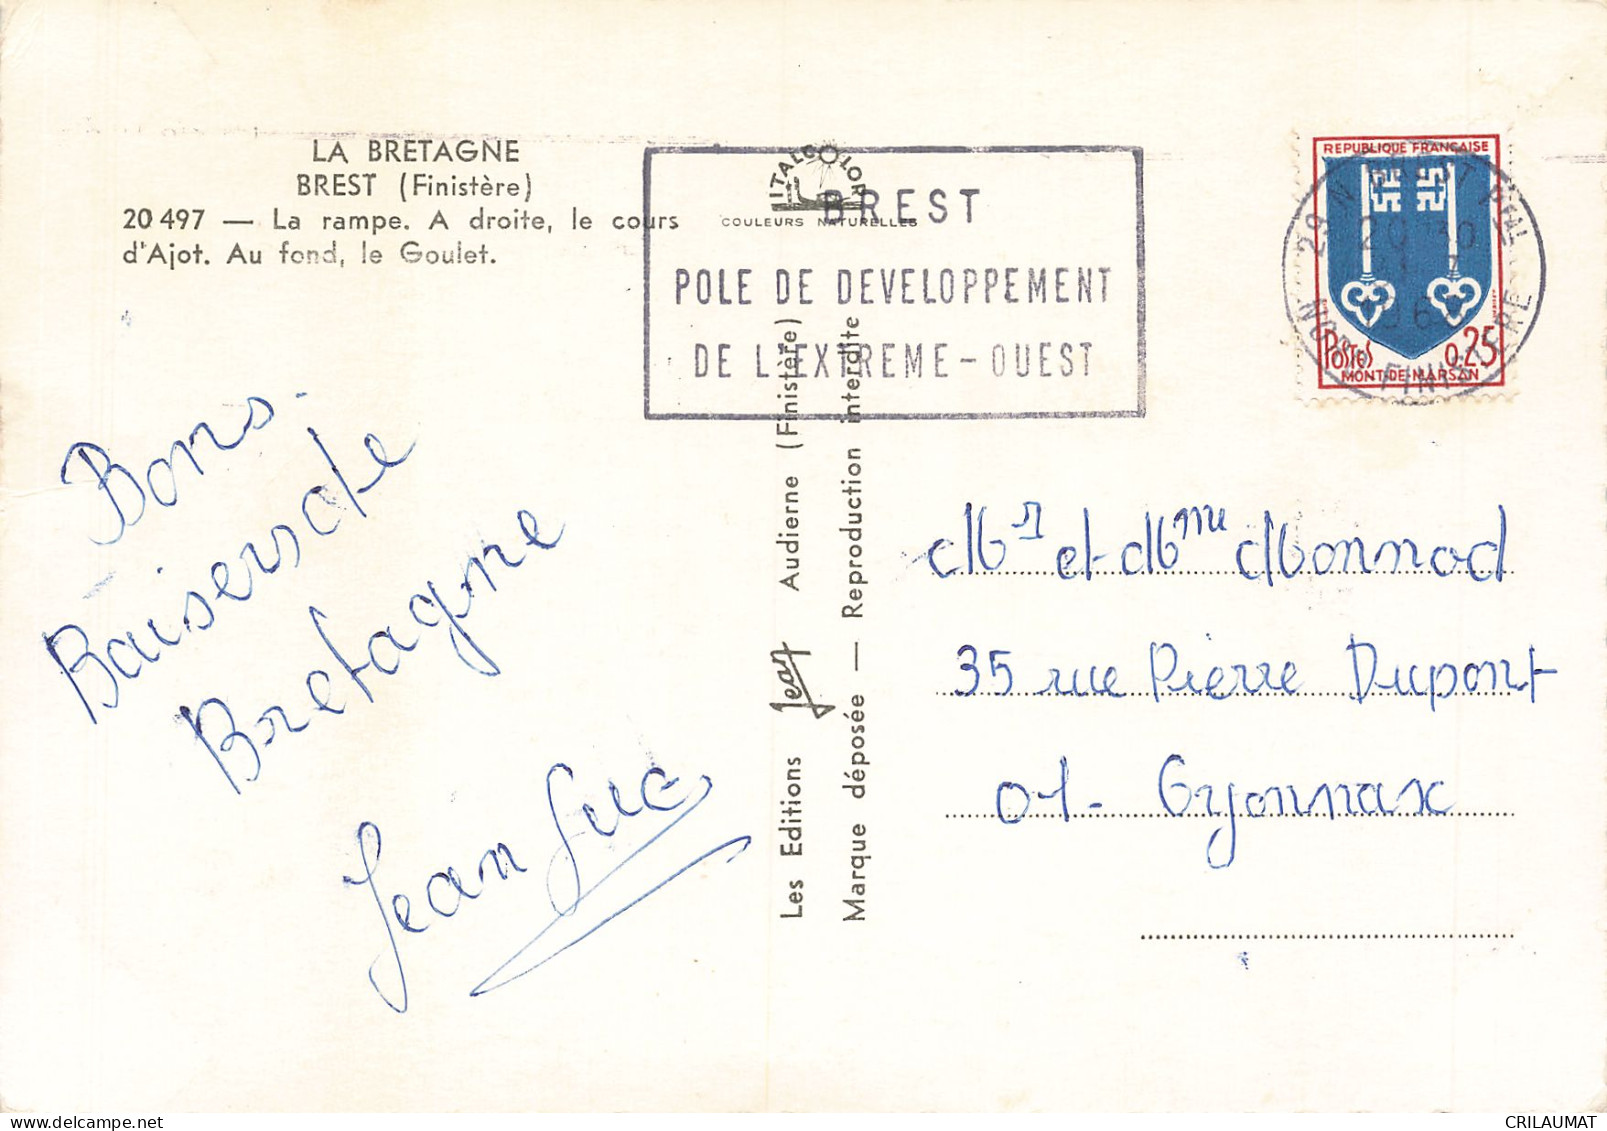 LA BRETAGNE
BREST (Finistère)
20 497 — La rampe. A droite, le cours
d'Ajot. Au fond, le Goulet.
ITALCOLOR
COULEURS NATURELLES
BREST
POLE DE DEVELOPPEMENT
DE L'EXTREME-OUEST
REPUBLIQUE FRANÇAISE
POSTES 0,25
MONT-DE-MARSAN
29 N BREST Pal
20 30
NORD FINISTERE
Bons
Baisers de
Bretagne
Jean Luc
Les Editions Jean Audierne (Finistère)
Marque déposée — Reproduction interdite
Mr et Mme Monnod
35 rue Pierre Dupont
01- Oyonnax
CRILAUMAT